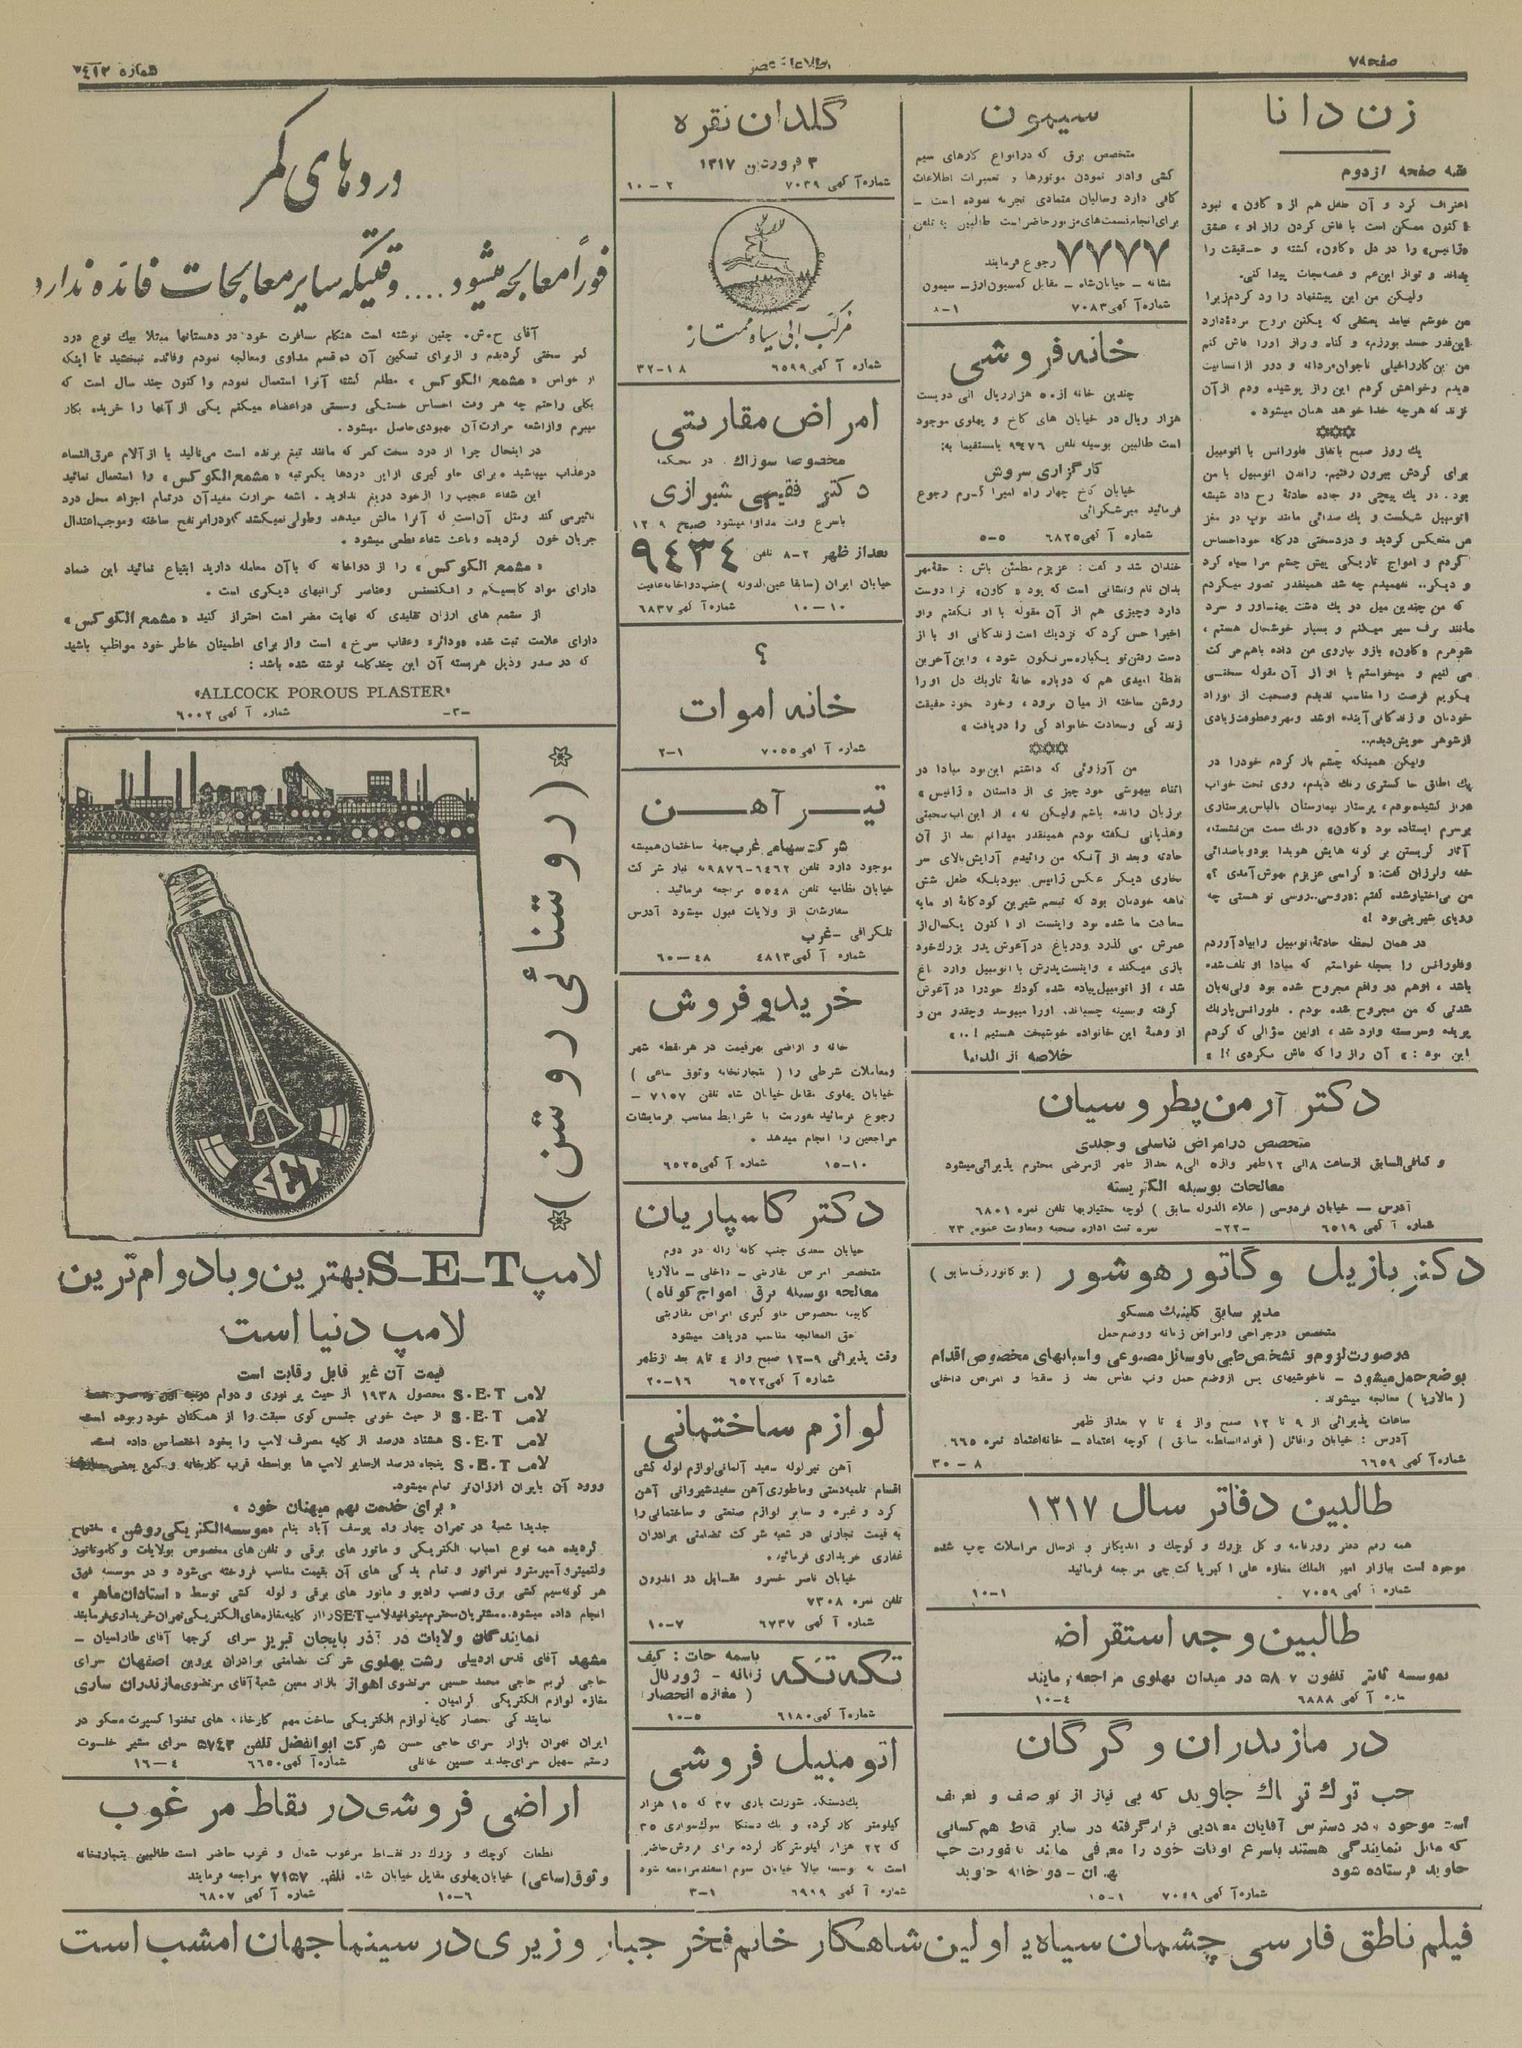 صفحه ۷
اطلاعات عصر
شماره ۳٤۱۲
زن دانا
بقیه صفحه ازدوم
اعتراف کرد و آن طفل هم از «کاون» نبود
اکنون ممکن است با فاش کردن راز او، عشق
«ژانیس» را در دل «کاون» کشته و حقیقت را
بداند و تو از این غم و غصه نجات پیدا کنی.
ولیکن من این پیشنهاد را رد کردم زیرا
من خوشم نیامد بعشقی که یکنن بروح مردۀ دارد
این قدر حسد بورزم، و گناه و راز اورا فاش کنم
دیدم و خواهش کردم این راز پوشیده
نزند که هرچه خدا خواهد همان میشود.
یك روز صبح باتفاق فلورانس با اتومبیل
برای گردش بیرون رفتیم. راندن اتومبیل با من
بود. در یك پیچی در جاده حادثۀ رخ داد شیشه
اتومبیل شکست و یك صدائی مانند توپ در مغز
من منعکس گردید و دردسختی درکله خود احساس
کردم و امواج تاریکی پیش چشم مرا سیاه کرد
و دیگر.. نفهمیدم چه شد همینقدر تصور میکردم
که من چندین میل در یك دشت پهناور و سرد
مانند برف سیر میکنم و بسیار خوشحال هستم،
شوهرم «کاون» بازو ببازوی من داده باهم حرکت
می کنیم و میخواستم با او از آن مقوله سخنی
بگویم فرصت را مناسب ندیدم وصحبت از نوزاد
خودمان و زندگانی آینده او شد ومهر و عطوفت زیادی
ازشوهر خویش دیدم..
ولیکن همینکه چشم باز کردم خودرا در
یك اطاق خاکستری رنك دیدم، روی تخت خواب
دراز کشیده بودم، پرستار بیمارستان بالباس پرستاری
برسرم ایستاده بود «کاون» در یك سمت من نشسته،
آثار گریستن بر گونه هایش هویدا بود و با صدائی
خفه ولرزان گفت: «گراسی عزیزم بهوش آمدی؟»
من بی اختیار شده گفتم: «روسی..روسی تو هستی چه
رویای شیرینی بود!»
در همان لحظه حادثۀ اتومبیل را بیاد آوردم
وفلورانس را بعجله خواستم که مبادا او تلف شده
باشد، او هم در واقع مجروح شده بود ولی نه بان
شدتی که من مجروح شده بودم. فلورانس با رنك
پریده وسربسته وارد شد، اولین سؤالی که کردم
این بود: «آن راز را که فاش نکردی؟!»
سیمون
متخصص برق که درانواع کارهای سیم
کشی وادار نمودن موتورها و تعمیرات اطلاعات
کافی دارد وسالیان متمادی تجربه نموده است ـ
برای انجام قسمت های مزبور حاضر است طالبین به تلفن
۷۷۷۷ رجوع فرمایند
نشانه – خیابان شاه – مقابل کمسیون ارز – سیمون
شماره آ گهی ۷۰۸۳ ۱-۸
خانه فروشی
چندین خانه از ۵۰ هزار ریال الی دویست
هزار ریال در خیابان های کاخ و پهلوی موجود
است طالبین بوسیله تلفن ۹۹٤۷٦ یا مستقیما به:
کارگزاری سروش
خیابان کاخ چهار راه امیراکرم رجوع
فرمائید میرشکرائی
شماره آ گهی ٦۸۲۵ ۵-۵
خندان شد و گفت: عزیزم مطمئن باش: حقه مهر
بدان نام ونشانی است که بود «کاون» ترا دوست
دارد وچیزی هم از آن مقوله با او نگفتم واو
اخیرا حس کرد که نزدیك است زندگانی او با از
دست رفتن تو یکباره سرنگون شود، و این آخرین
نقطۀ امیدی هم که دوباره خانۀ تاریك دل او را
روشن ساخته از میان برود، وخود خود حقیقت
زندگی وسعادت خانوادگی را دریافت»
من آرزوئی که داشتم این بود مبادا در
اثناء بیهوشی خود چیزی از داستان «ژانیس»
برزبان رانده باشم ولیکن نه، از این باب صحبتی
وهذیانی نگفته بودم همینقدر میدانم بعد از آن
حادثه وبعد از آنکه من زائیدم آرایش بالای سر
بخاری دیگر عکس ژانیس نبود بلکه طفل شش
ماهه خودمان بود که تبسم شیرین کودکانۀ او مایه
سعادت ما شده بود واینست او اکنون یکسال از
عمرش می گذرد ودرباغ در آغوش پدر بزرك خود
بازی میکند، واینست پدرش با اتومبیل وارد باغ
شد، از اتومبیل پیاده شده کودك خودرا در آغوش
گرفته وبسینه چسباند. اورا میبوسد وچقدر من و
او وهمۀ این خانواده خوشبخت هستیم!..»
خلاصه از الدنیا
گلدان نقره
۳ فروردین ۱۳۱۷
شماره آ گهی ۷۰۳۹ ۲-۱۰
مرکب آبی سیاه ممتاز
شماره آ گهی ٦۵۹۹ ۱۸-۳۲
امراض مقاربتی
مخصوصا سوزاك. در محکمه
دکتر فقیهی شیرازی
باسرع وقت مداوا میشود صبح ۹-۱۲
بعداز ظهر ۲-۸ تلفن ۹٤۳٤
خیابان ایران (سابقا عین الدوله) جنب دواخانه عافیت
۱۰-۱۰ شماره آ گهی ٦۸۳۷
؟
خانه اموات
شماره آ گهی ۷۰۵۵ ۱-۲
تیر آهن
شرکت سهامی غرب جهة ساختمان همیشه
موجود دارد تلفن ۱٤٦۲-۹۸۷٦ به نیار شرکت
خیابان نظامیه تلفن ۵۵٤۸ مراجعه فرمائید.
سفارشات از ولایات قبول میشود آدرس
تلگرافی – غرب
شماره آ گهی ٤۸۱۳ ٤۸-٦۰
خرید و فروش
خانه و اراضی بهر قیمت در هر نقطه شهر
ومعاملات شرطی را (بتجارتخانه وثوق ساعی)
خیابان پهلوی مقابل خیابان شاه تلفن ۷۱۵۷ –
رجوع فرمائید بفوریت با شرایط مناسب فرمایشات
مراجعین را انجام میدهد.
۱۰-۱۵ شماره آ گهی ٦۵۲۵
دکتر کاسپاریان
خیابان سعدی جنب کافه ژاله در دوم
متخصص امراض مقاربتی – داخلی – مالاریا
معالجه بوسیله برق (امواج کوتاه)
کابینه مخصوص جلوگیری امراض مقاربتی
حق المعالجه مناسب دریافت میشود
وقت پذیرائی ۹-۱۲ صبح و از ٤ تا ۸ بعد از ظهر
شماره آ گهی ٦۵۲۲ ۱٦-۲۰
لوازم ساختمانی
آهن تیر لوله سفید آلمانی لوازم لوله کشی
اقسام تلمبه دستی وماطوری آهن سفید شیروانی آهن
گرد و غیره و سایر لوازم صنعتی و ساختمانی را
به قیمت تجارتی در شعبه شرکت تضامنی برادران
غفاری خریداری فرمائید.
خیابان ناصر خسرو مقابل در اندرون
تلفن نمره ۷۳۰۸
شماره آ گهی ٦۷۳۷ ۷-۱۰
تکه تکه
باسمه جات: کیف
زنانه – ژورنال
(مغازه انحصار)
شماره آ گهی ٦۱۸۰ ۵-۱۰
اتومبیل فروشی
یك دستگاه شورلت باری ۳۷ که ۱۵ هزار
کیلومتر کار کرده و یك دستگاه بیوك سواری ۳۵
که ۲۲ هزار کیلومتر کار کرده برای فروش حاضر
است به موسسه بیالا خیابان سوم اسفند مراجعه شود
شماره آ گهی ٦۹۱۹ ۱-۳
دردهای کمر
فوراً معالجه میشود.... وقتیکه سایر معالجات فائده ندارد
آقای ح.ش. چنین نوشته است هنگام مسافرت خود در دهستانها مبتلا بیك نوع درد
کمر سختی گردیدم و از برای تسکین آن ده قسم مداوی ومعالجه نمودم وفائده نبخشید تا اینکه
از خواص «مشمع الکوکس» مطلع گشته آنرا استعمال نمودم و اکنون چند سال است که
بکلی راحتم چه هر وقت احساس خستگی وسستی دراعضاء میکنم یکی از آنها را خریده بکار
میبرم وازاشعه حرارت آن بهبودی حاصل میشود.
در اینحال چرا از درد سخت کمر که مانند تیغ برنده است می نالید یا از آلام عرق النساء
درعذاب میباشید «برای جلو گیری ازاین دردها یکمرتبه «مشمع الکوکس» را استعمال نمائید
این شفاء عجیب را ازخود دریغ ندارید. اشعه حرارت مفید آن درتمام اجزاء محل درد
تاثیر می کند ومثل آن است که آنرا مالش میدهد وطولی نمیکشد که دردرا مرتفع ساخته وموجب اعتدال
جریان خون گردیده وباعث شفاء قطعی میشود.
«مشمع الکوکس» را از دواخانه که باآن معامله دارید ابتیاع نمائید این ضماد
دارای مواد کابسیکم و افکنسنس وعناصر گرانبهای دیگری است.
از مشمع های ارزان تقلیدی که نهایت مضر است احتراز کنید «مشمع الکوکس»
دارای علامت ثبت شده «ودائره وعقاب سرخ» است واز برای اطمینان خاطر خود مواظب باشید
که در صدر وذیل هر بسته آن این چند کلمه نوشته شده باشد:
"ALLCOCK POROUS PLASTER"
-۳- شماره آ گهی ٦۰۰۲
(روشنائی روشن)
SET
لامپ S-E-T بهترین و بادوام ترین
لامپ دنیا است
قیمت آن غیر قابل رقابت است
لامپ S.E.T محصول ۱۹۳۸ از حیث پر نوری و دوام
لامپ S.E.T از حیث خوبی جنس گوی سبقت را از همکنان خود ربوده است
لامپ S.E.T هشتاد درصد از کلیه مصرف لامپ را بخود اختصاص داده است
لامپ S.E.T پنجاه درصد ازسایر لامپ ها بواسطه قرب کارخانه و کمی
ورود آن بایران ارزان تر تمام میشود.
«برای خدمت بهم میهنان خود»
جدیدا شعبۀ در تهران چهار راه یوسف آباد بنام «موسسه الکتریکی روشن» مفتوح
گردیده همه نوع اسباب الکتریکی و ماتور های برقی و تلفن های مخصوص بولایات و کاموتاتور
ولتمیتر و آمپرمتر و نمراتور و تمام یدکی های آن بقیمت مناسب فروخته می شود و در موسسه فوق
هر گونه سیم کشی برق ونصب رادیو و ماتور های برقی و لوله کشی توسط «استادان ماهر»
انجام داده میشود. مشتریان محترم میتوانید لامپ SET را از کلیه مغازه های الکتریکی تهران خریداری فرمایند
نمایندگان ولایات در آذر بایجان تبریز سرای گرجیها آقای طاراسیان –
مشهد آقای قدس اردبیلی رشت پهلوی شرکت تضامنی برادران پروین اصفهان سرای
حاجی کریم حاجی محمد حسین مرتضوی اهواز بازار معین شعبۀ آقای مرتضوی مازندران ساری
مغازه لوازم الکتریکی گرامیان.
نمایندگی انحصار کلیۀ لوازم الکتریکی ساخت مهم کارخانه های تخنوا کسپرت مسکو در
ایران تهران بازار سرای حاجی حسن شرکت ابوالفضل تلفن ۵۷٤۳ سرای مشیر خلوت
رستم سهیل سرای جدید حسین خانلی شماره آ گهی ٦٦۵۰ ٤-۱٦
اراضی فروشی در نقاط مرغوب
قطعات کوچك و بزرك در نقاط مرغوب شمال و غرب حاضر است طالبین بتجارتخانه
وثوق (ساعی) خیابان پهلوی مقابل خیابان شاه تلفن ۷۱۵۷ مراجعه فرمایند
شماره آ گهی ٦۸۰۷ ٦-۱۰
دکتر آرمن پطروسیان
متخصص درامراض تناسلی وجلدی
و کمافی السابق از ساعت ۸ الی ۱۲ ظهر واز ۵ الی ۸ بعداز ظهر ازمرضی محترم پذیرائی میشود
معالجات بوسیله الکتریسته
آدرس – خیابان فردوسی (علاء الدوله سابق) کوچه بختیاریها تلفن نمره ٦۸۰۱
شماره آ گهی ٦۵۱۹ -۲۲- نمره ثبت اداره صحیه ومعاونت عمومی ۲۳
دکتر بازیل وگاتور هوشور
مدیر سابق کلینیك مسکو
متخصص درجراحی وامراض زنانه ووضع حمل
درصورت لزوم و تشخیص طبی با وسائل مصنوعی واسبابهای مخصوص اقدام
بوضع حمل میشود – ناخوشیهای پس ازوضع حمل وتب نفاس بعد از سقط و امراض داخلی
(مالاریا) معالجه میشوند.
ساعات پذیرائی از ۹ تا ۱۲ صبح واز ٤ تا ۷ بعداز ظهر
آدرس: خیابان رفائل (قوام السلطنه سابق) کوچه اعتماد – خانه اعتماد نمره ٦٦۵
شماره آ گهی ٦٦۵۹ ۸-۳۰
طالبین دفاتر سال ۱۳۱۷
همه رقم دفتر روزنامه و کل بزرك و کوچك و اندیکاتر و ارسال مراسلات چاپ شده
موجود است ببازار امیر الملك مغازه علی اکبر پاکت چی مراجعه فرمائید
شماره آ گهی ۷۰۵۹ ۱-۱۰
طالبین وجه استقراض
بموسسه تلفون ۵۸۰۷ در میدان پهلوی مراجعه نمایند
شماره آ گهی ٦۸۸۸ ٤-۱۰
در مازندران و گرگان
حب ترك تریاك جاوید که بی نیاز از توصیف و تعریف
است موجود و در دسترس آقایان معتادین قرار گرفته در سایر نقاط هم کسانی
که مایل نمایندگی هستند باسرع اوقات خود را معرفی نمایند تا فوریت حب
جاوید فرستاده شود تهران – دواخانه جاوید
شماره آ گهی ۷۰٤۹ ۱-۱۵
فیلم ناطق فارسی چشمان سیاه یا اولین شاهکار خانم فخر جبار وزیری در سینما جهان امشب است